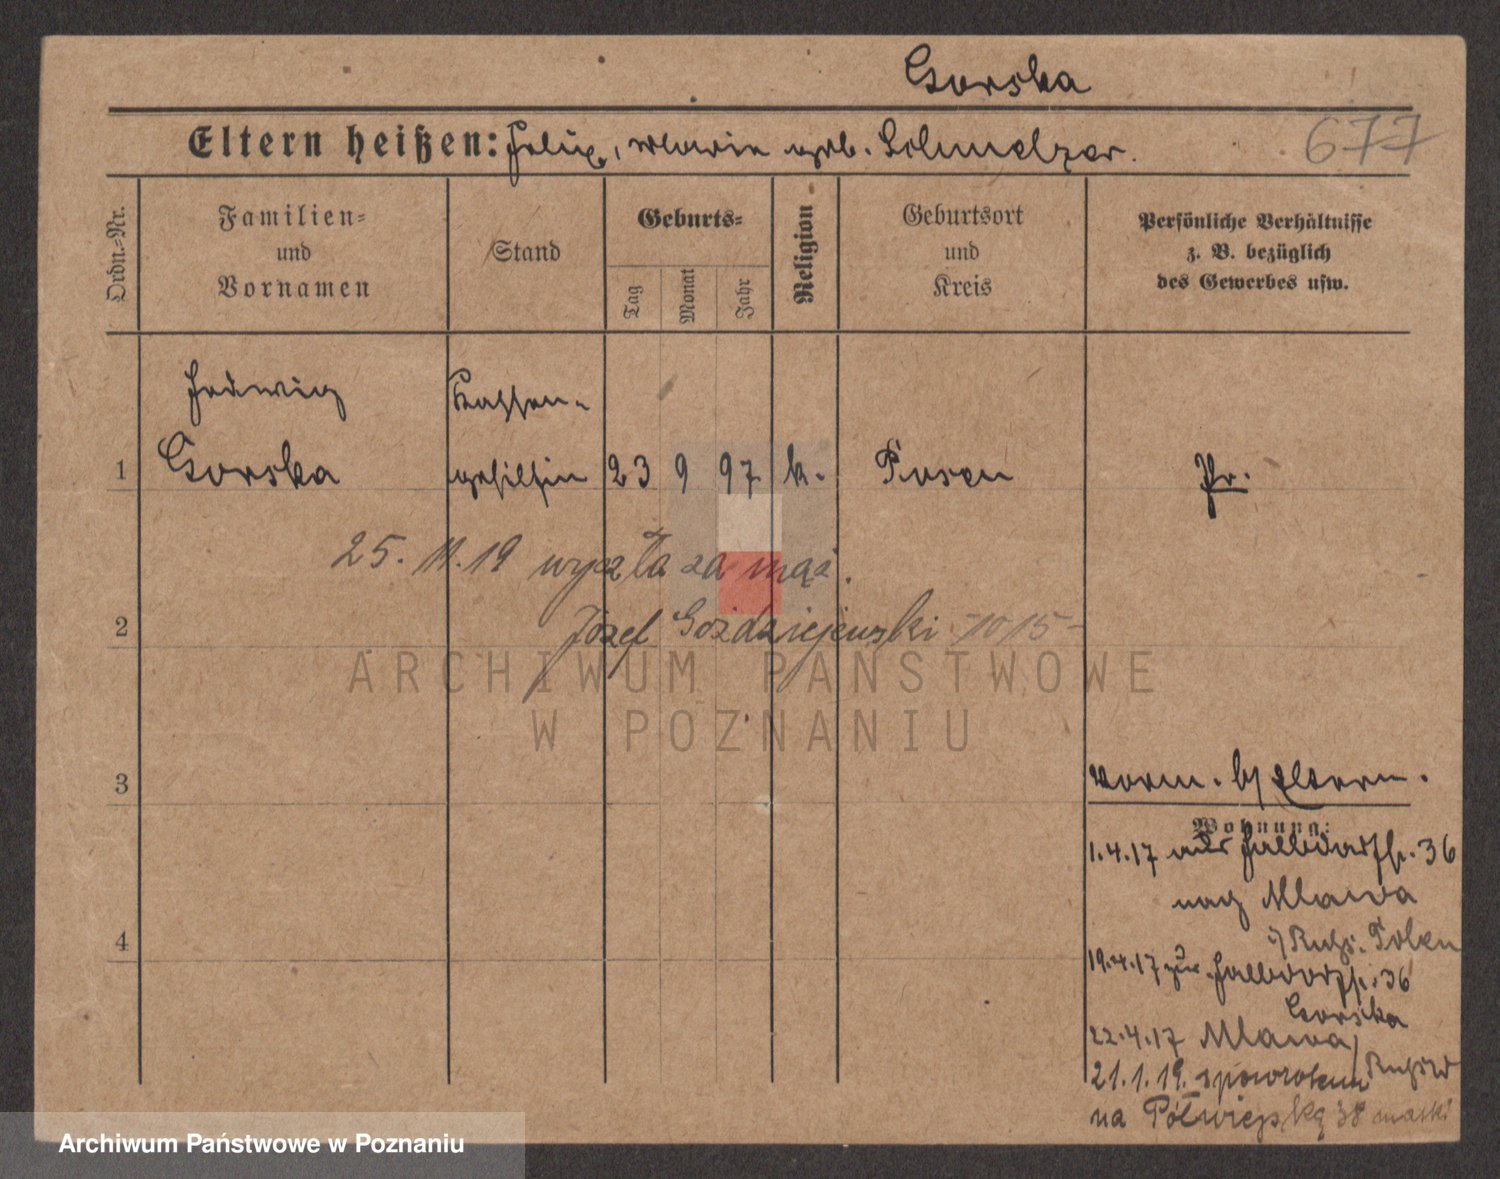 Gorska
Eltern heißen: Felix, Maria geb. Schmelzer.
677
Ordn.-Nr.
Familien- und Vornamen
Stand
Geburts-
Tag
Monat
Jahr
Religion
Geburtsort und Kreis
Persönliche Verhältnisse z. B. bezüglich des Gewerbes usw.
Hedwig
Kassen-
1 Gorska gehilfin 23 9 97 k. Posen Pr.
25. 11. 19 wyszła za mąż.
2
Józef Goździejewski -1015-
ARCHIWUM PAŃSTWOWE
W POZNANIU
3
vorm. b/ Eltern.
Wohnung:
1.4.17 aus Halbdorfstr. 36
nach Mlawa
4
i/ Russ. Polen
19.4.17 zur. Halbdorfstr. 36
Gorska
22.4.17 Mlawa/
21.1.19. spowrotem
na Półwiejską 38 matki
Archiwum Państwowe w Poznaniu